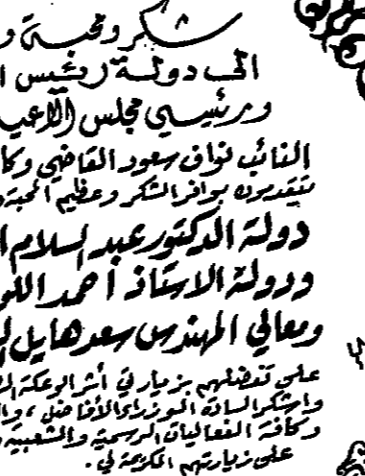 شكر ومحبة و
الى دولة رئيس ا
ورئيسي مجلس الاعيا
النائب نواف سعود القاضي وكا
يتقدمون بوافر الشكر وعظيم المحبة
دولة الدكتور عبد السلام ا
ودولة الاستاذ أحمد اللو
ومعالي المهندس سعد هايل ا
على تفضلهم بزيارتي أثر الوعكة ال
واشكر السادة الوزراء الأفاضل، وا
وكافة الفعاليات الرسمية والشعبية
على زيارتهم الكريمة لي.